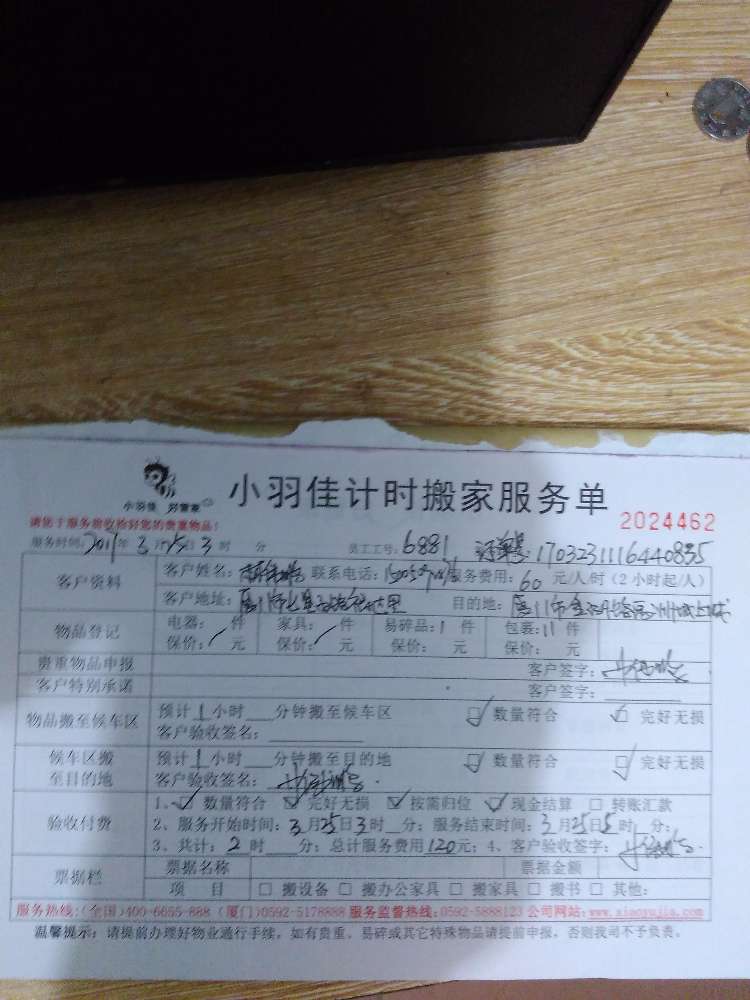 小羽佳 好管家
小羽佳计时搬家服务单
2024462
请您于服务前收拾好您的贵重物品!
服务时间: 年3月25日3时 分 员工工号:6881 1703231116440835
客户资料 客户姓名: 联系电话: 服务费用:60元/人/时(2小时起/人)
客户地址: 目的地:
物品登记 电器: 件 家具: 件 易碎品:1件 包裹:11件
保价: 元 保价: 元 保价: 元 保价: 元
贵重物品申报 客户签字:
客户特别承诺 客户签字:
物品搬至候车区 预计1小时 分钟搬至候车区 ☑数量符合 ☑完好无损
客户验收签名:
候车区搬至目的地 预计1小时 分钟搬至目的地 ☑数量符合 ☑完好无损
客户验收签名:
验收付费 1、☑数量符合 ☑完好无损 ☑按需归位 ☑现金结算 □转账汇款
2、服务开始时间:3月25日3时 分;服务结束时间:3月25日5时 分;
3、共计:2时 分;总计服务费用120元;4、客户验收签字:
票据栏 票据名称 票据金额
项 目 □搬设备 □搬办公家具 □搬家具 □搬书 □其他:
服务热线:(全国)400-6655-888 (厦门)0592-5178888 服务监督热线:0592-5888123 公司网站:www.xiaoyujia.com
温馨提示:请提前办理好物业通行手续。如有贵重、易碎或其它特殊物品请提前申报,否则我司不予负责。